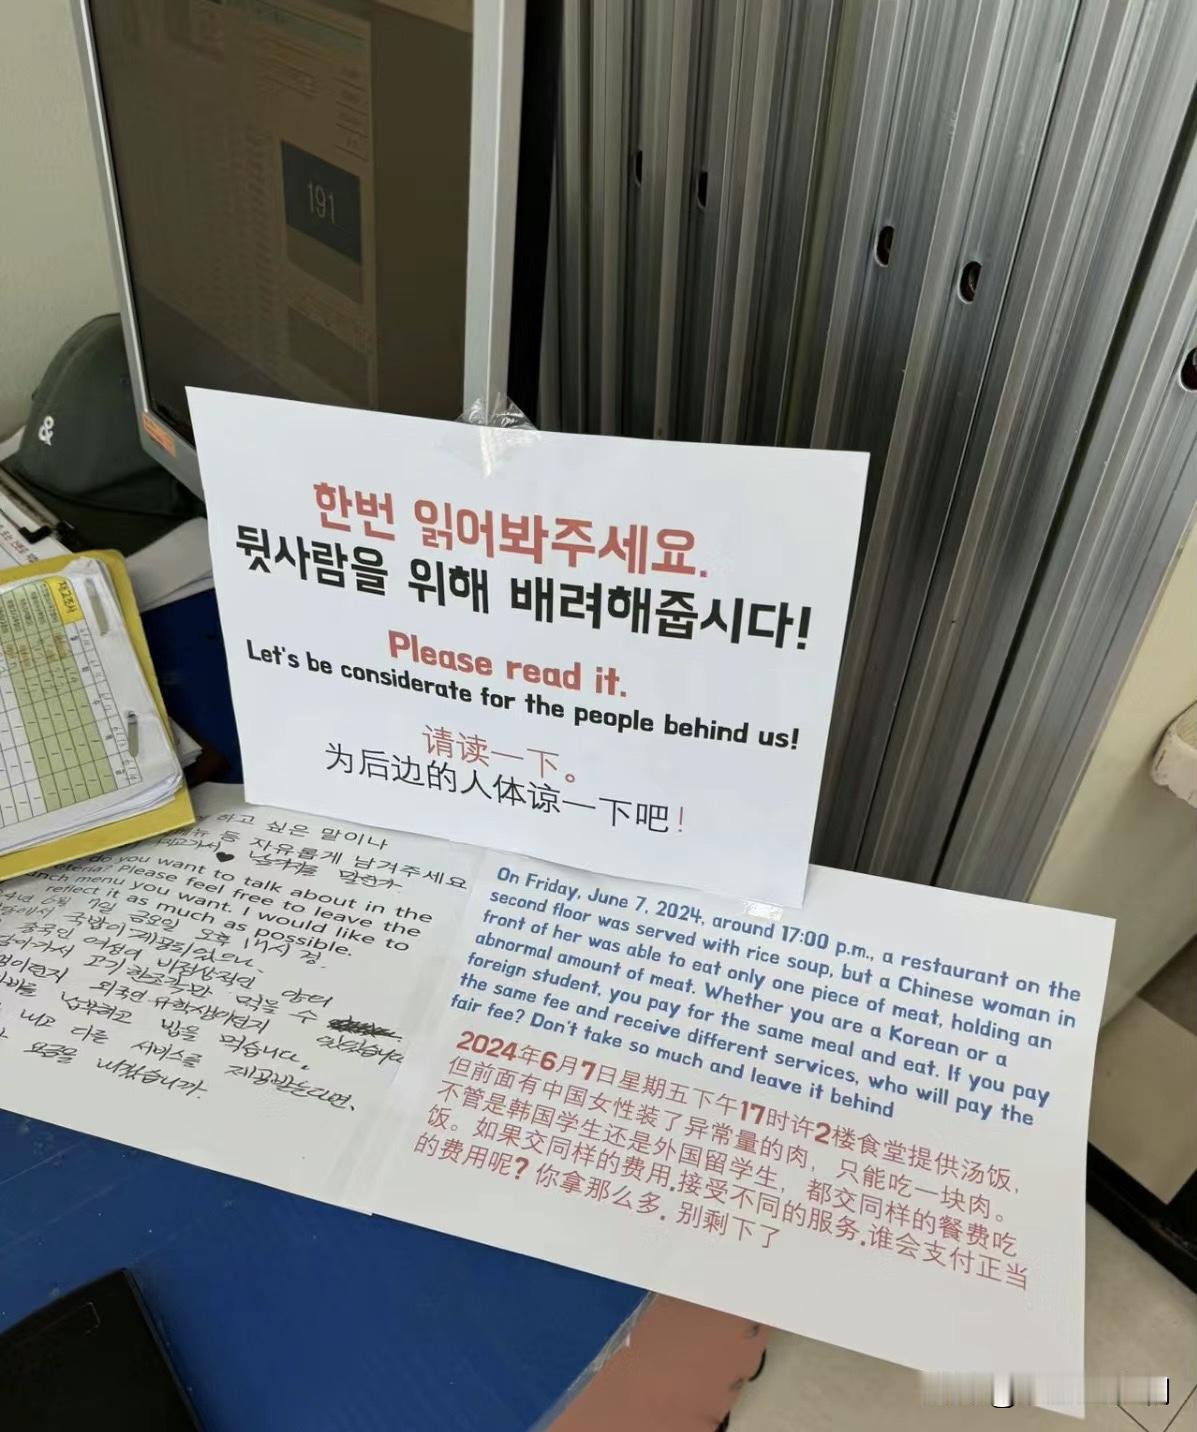 191
&
한번 읽어봐주세요.
뒷사람을 위해 배려해줍시다!
Please read it.
Let's be considerate for the people behind us!
请读一下。
为后边的人体谅一下吧!
하고 싶은 말이나
등 자유롭게 남겨주세요
do you want to talk about in the
Please feel free to leave the
menu you want. I would like to
reflect it as much as possible.
6월 7일 금요일 오후
국밥이 제공되었으나
중국인 여성이 비정상적인 양의
가서 고기 한조각만 먹을 수 있었습니다
외국인 유학생이던지
납부하고 밥을 먹습니다.
내고 다른 서비스를 제공받는다면,
요금을 내겠습니까.
On Friday, June 7, 2024, around 17:00 p.m., a restaurant on the
second floor was served with rice soup, but a Chinese woman in
front of her was able to eat only one piece of meat, holding an
abnormal amount of meat. Whether you are a Korean or a
foreign student, you pay for the same meal and eat. If you pay
the same fee and receive different services, who will pay the
fair fee? Don't take so much and leave it behind
2024年6月7日星期五下午17时许2楼食堂提供汤饭,
但前面有中国女性装了异常量的肉, 只能吃一块肉。
不管是韩国学生还是外国留学生, 都交同样的餐费吃
饭。如果交同样的费用.接受不同的服务.谁会支付正当
的费用呢? 你拿那么多. 别剩下了